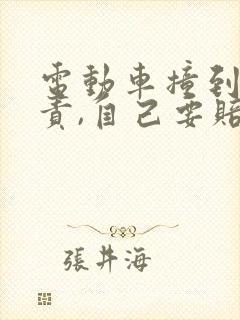 電動車撞到
責,自己要賠
張井海